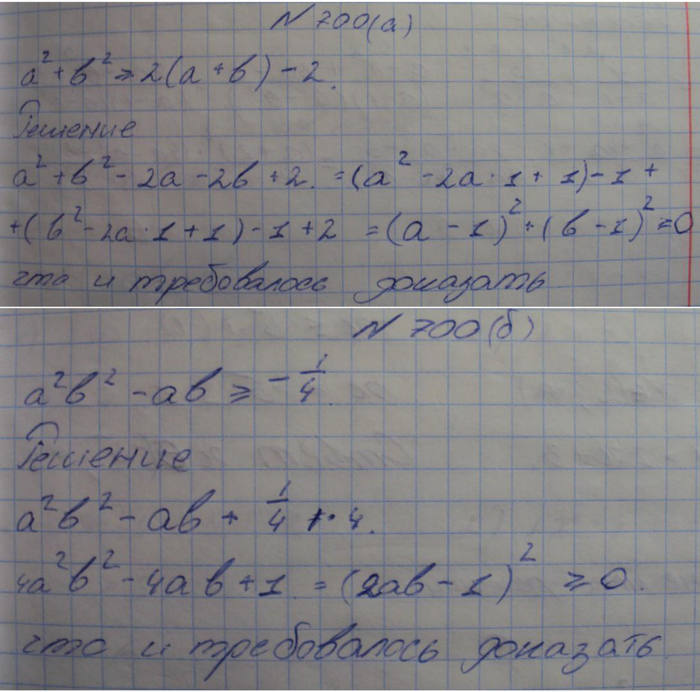 N 700(а)
a² + b² ≥ 2(a + b) - 2.
Решение
a² + b² - 2a - 2b + 2. = (a² - 2a · 1 + 1) - 1 +
+ (b² - 2a · 1 + 1) - 1 + 2 = (a - 1)² + (b - 1)² ≥ 0
что и требовалось доказать
N 700(б)
a²b² - ab ≥ - 1/4.
Решение
a²b² - ab + 1/4 | · 4.
4a²b² - 4ab + 1. = (2ab - 1)² ≥ 0.
что и требовалось доказать.